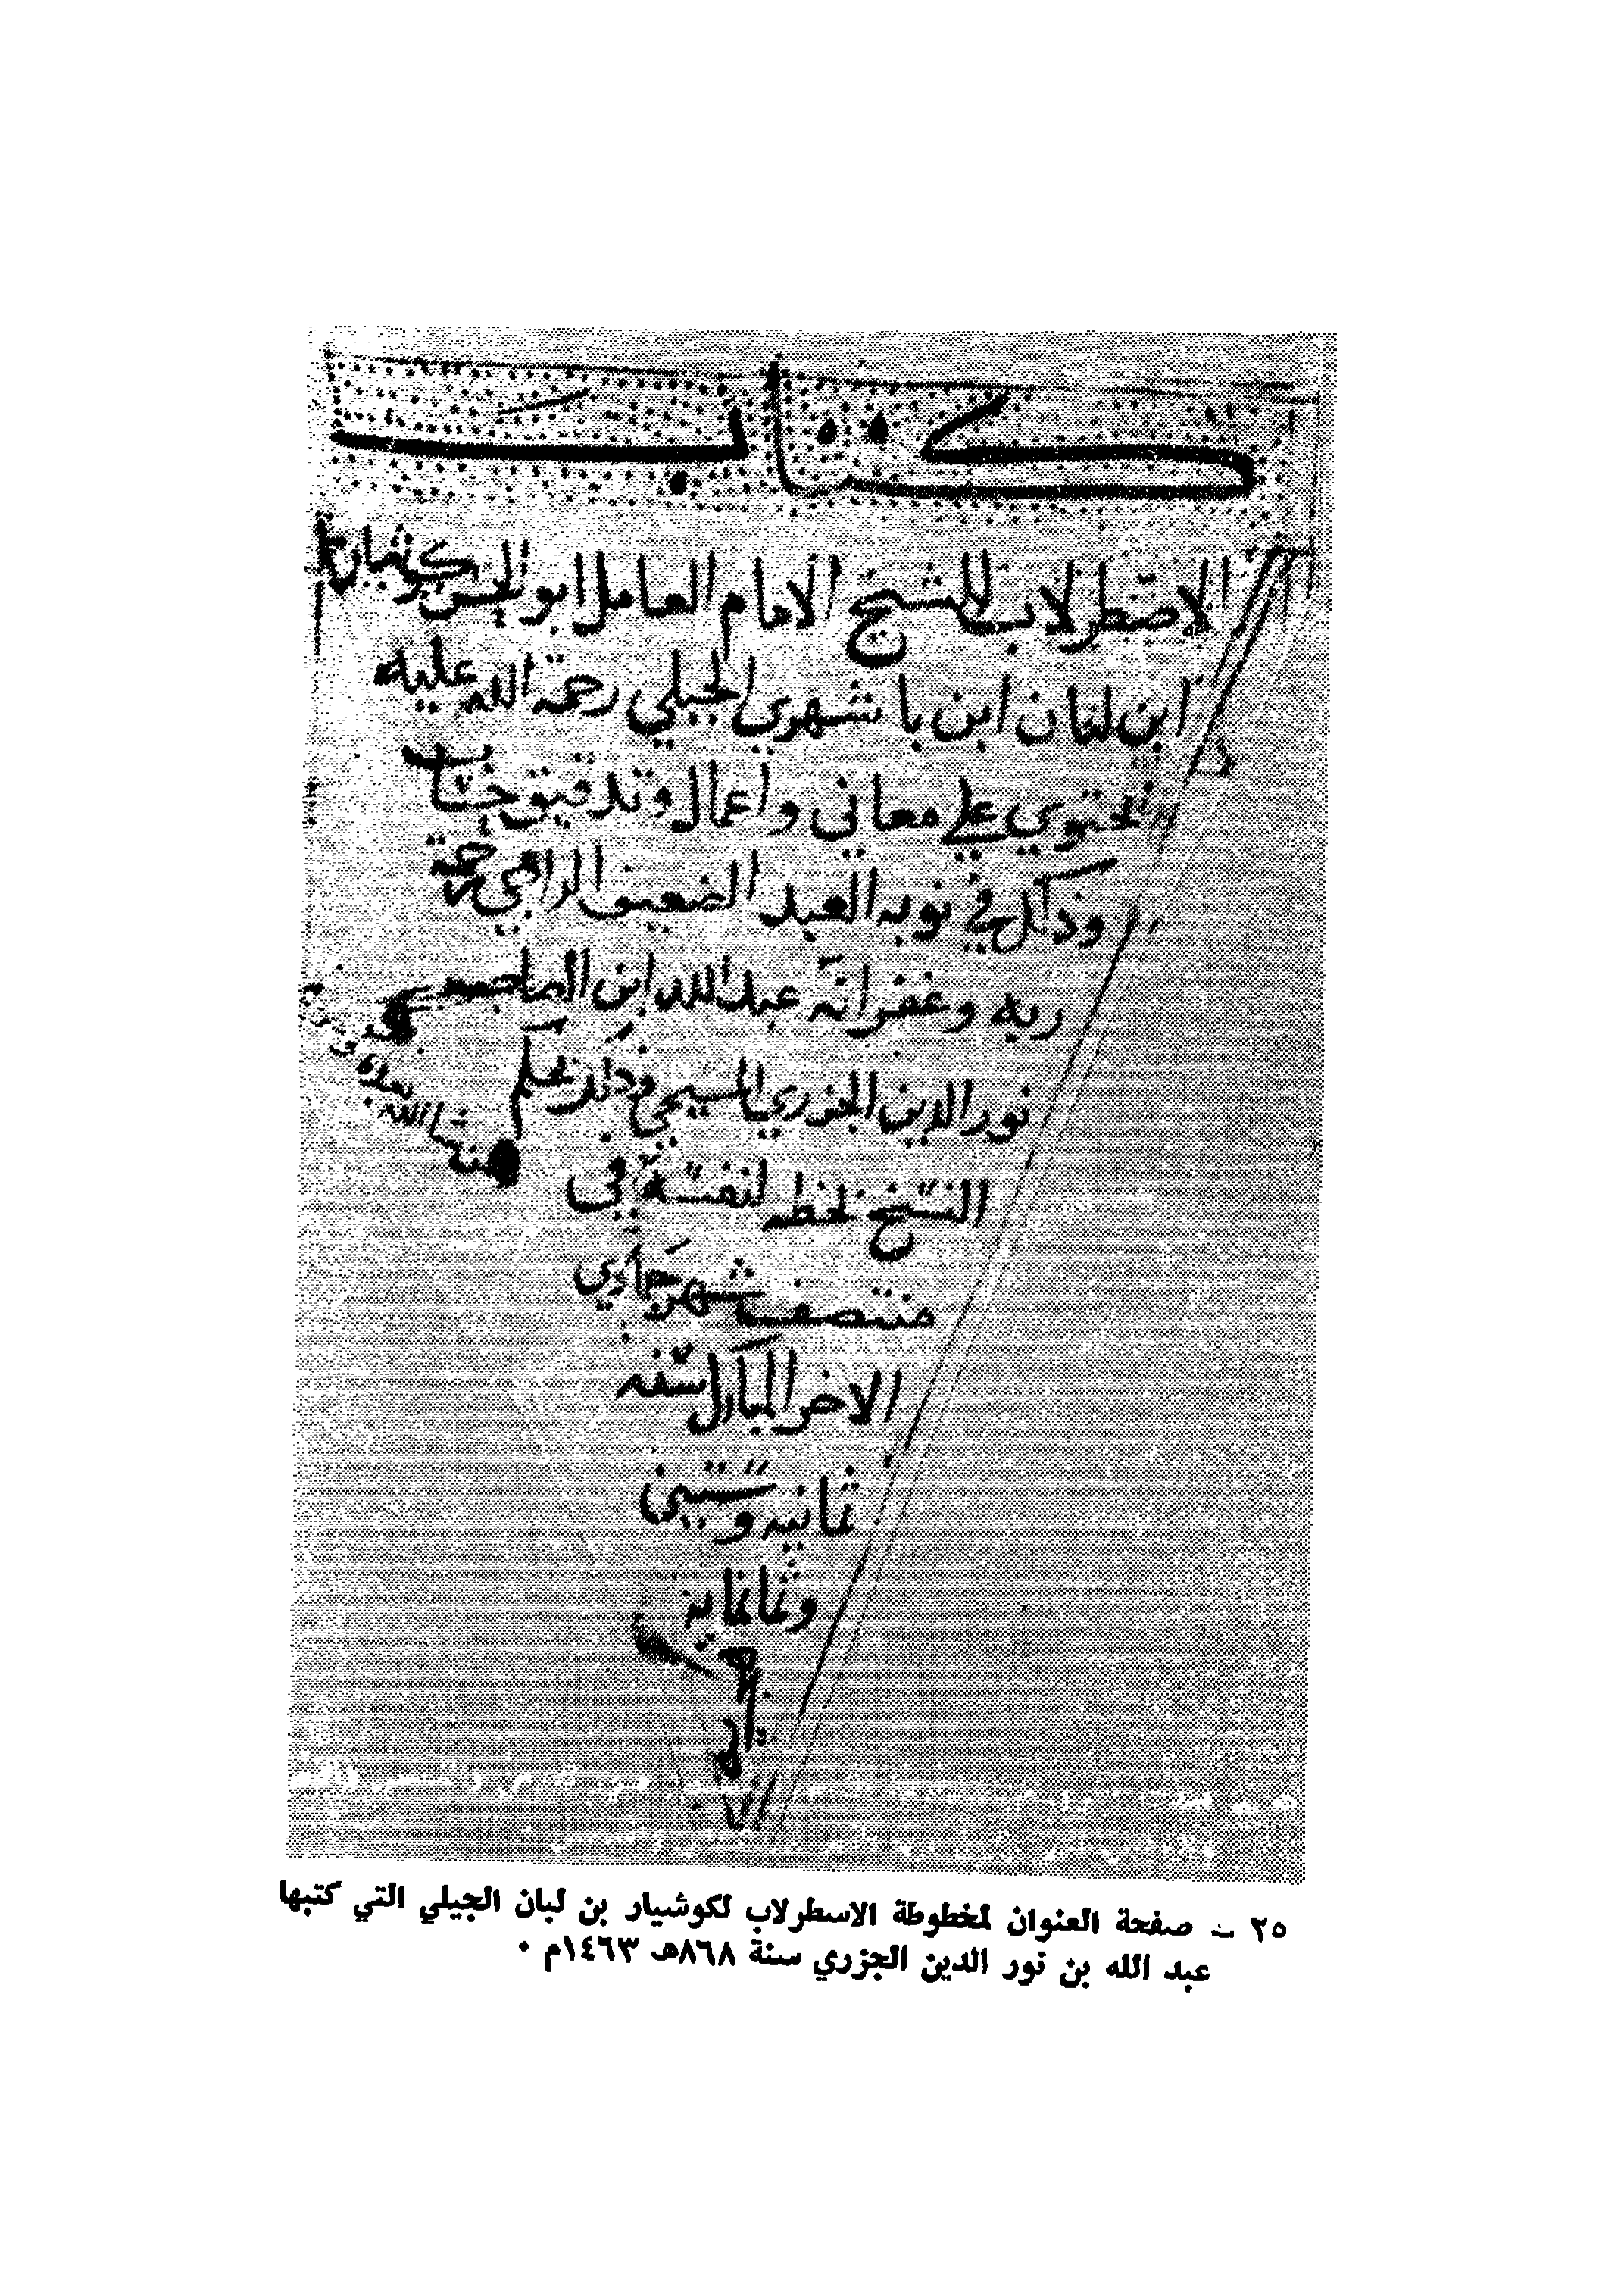 كتاب
الاصطرلاب للشيخ الامام العامل ابو الحسن كوشيار
ابن لبان ابن با شهري الجيلي رحمة الله عليه
يحتوي علي معاني واعمال وتدقيق حساب
وذلك في نوبه العبد الضعيف الراجي رحمة
ربه وغفرانه عبد الله ابن
نور الدين الجزري المسيحي
النسخ بخطه لنفسه في
منتصف شهر جمادي
الاخر المبارك سنة
ثمانيه وستين
وثمانمايه
٢٥ – صفحة العنوان لمخطوطة الاسطرلاب لكوشيار بن لبان الجيلي التي كتبها
عبد الله بن نور الدين الجزري سنة ٨٦٨هـ ١٤٦٣م ٠